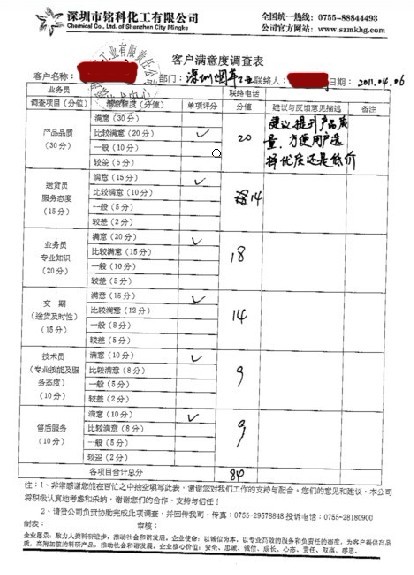 深圳市铭科化工有限公司
Chemical Co.,Ltd of Shenzhen City Mingke
全国统一热线：0755-88844493
公司官方网站：www.szmkhg.com
客户满意度调查表
客户名称： 部门：深圳 联络人： 日期：2011.04.06
业务员 联络电话
调查项目（分值） 满意程度（分值） 单项评分 分值 建议与反馈意见描述 备注
产品品质（30分） 满意（30分） 20 建议提升产品质
比较满意（20分） ✓ 量，方便用户选
一般（10分） 择优质还是低价
较差（5分）
送货员服务态度（15分） 满意（15分） ✓ 14
比较满意（10分）
一般（5分）
较差（2分）
业务员专业知识（20分） 满意（20分） ✓ 18
比较满意（15分）
一般（10分）
较差（5分）
交期（送货及时性）（15分） 满意（15分） ✓ 14
比较满意（12分）
一般（8分）
较差（5分）
技术员（专业技能及服务态度）（10分） 满意（10分） ✓ 9
比较满意（8分）
一般（5分）
较差（2分）
售后服务（10分） 满意（10分） ✓ 9
比较满意（8分）
一般（5分）
较差（2分）
各项目合计总分 84
注：1、非常感谢您能在百忙之中抽空填写此表，请留您对我们工作的支持与配合。您们的意见和建议，本公司
将积极认真地考虑和采纳，谢谢您们的合作、支持与信任！
2、请贵公司负责协助完成此项调查，并回传我司，传真：0755-29578848 投诉电话：0755-28180900
制表： 审核：